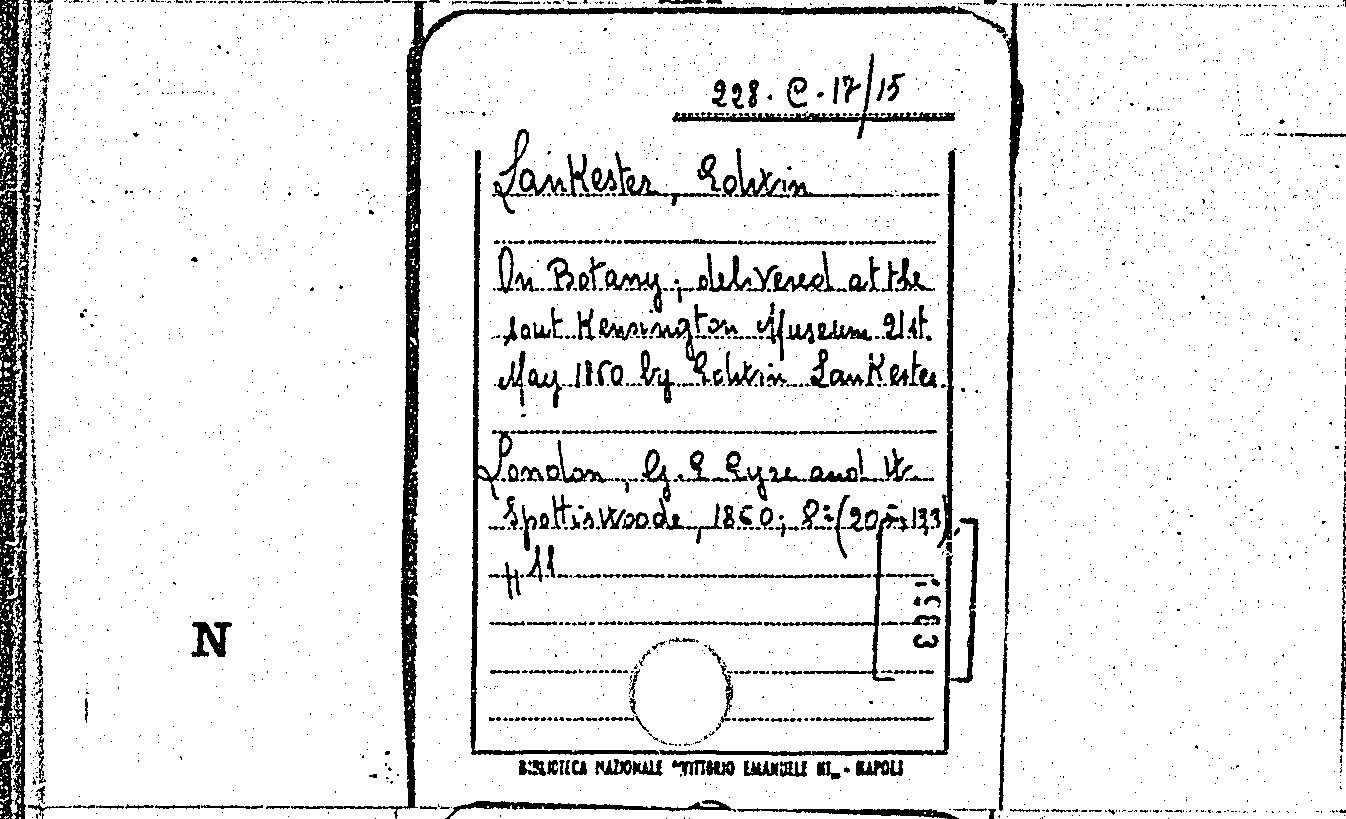 228. C. 17/15
Lankester, Edwin
On Botany; delivered at the
sout Kensington Museum 21st.
May 1860 by Edwin Lankester
London, G. E Eyre and W.
Spottiswoode, 1860; 8° (20,5;13,3)
pp 11
N
BIBLIOTECA NAZIONALE "VITTORIO EMANUELE III„ - NAPOLI